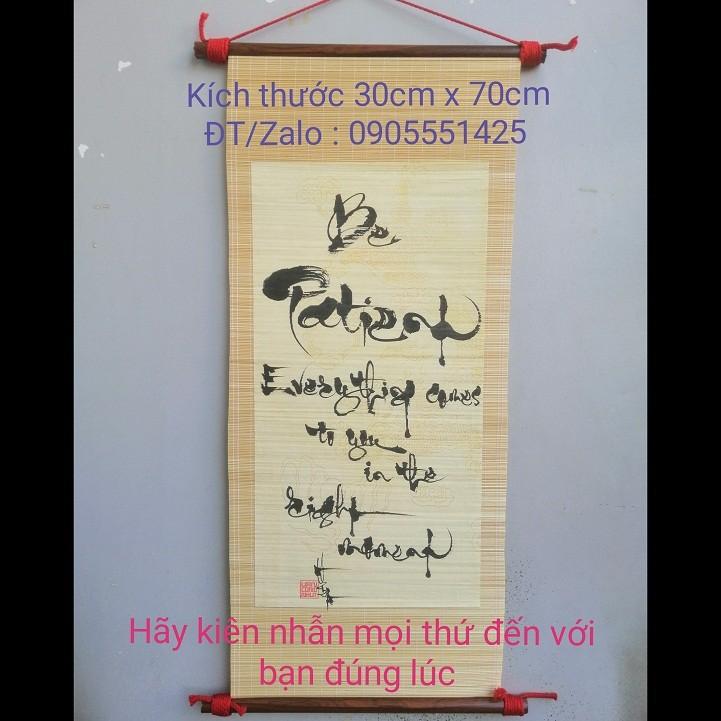 Kích thước 30cm x 70cm
ĐT/Zalo : 0905551425
Be
Patient
Everything comes
to you
in the
right
moment
Hãy kiên nhẫn mọi thứ đến với
bạn đúng lúc